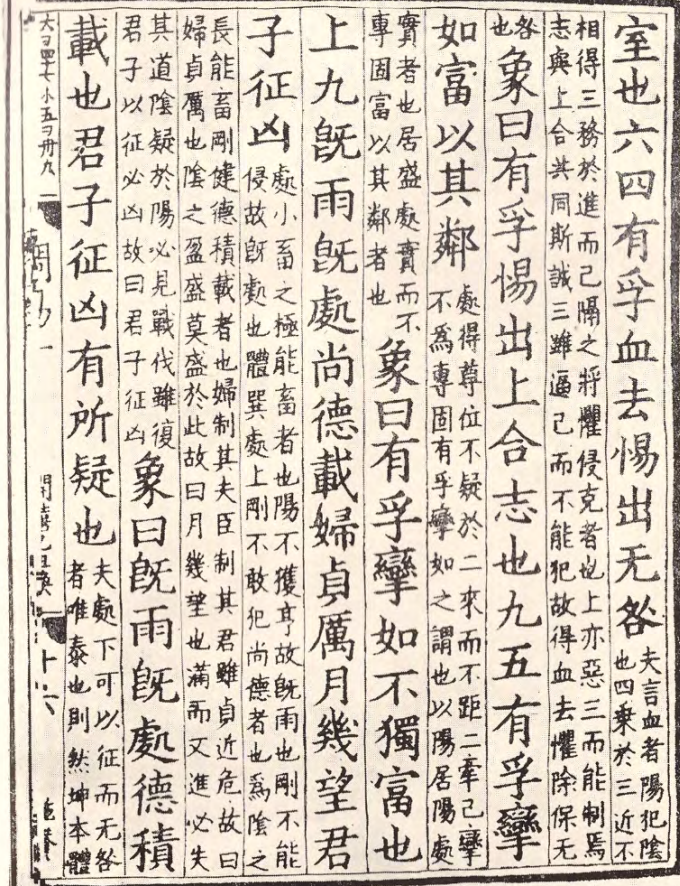 室也六四有孚血去惕出无咎
夫言血者陽犯陰
也四乗於三近不
相得三務於進而己隔之將懼侵克者也上亦惡三而能制焉
志與上合共同斯誠三雖逼己而不能犯故得血去懼除保无
咎
也
象曰有孚惕出上合志也九五有孚攣
如富以其鄰
處得尊位不疑於二來而不距二牽己攣
不爲專固有孚攣如之謂也以陽居陽處
實者也居盛處實而不
專固富以其鄰者也
象曰有孚攣如不獨富也
上九旣雨旣處尚德載婦貞厲月幾望君
子征凶
處小畜之極能畜者也陽不獲亨故旣雨也剛不能
侵故旣處也體巽處上剛不敢犯尚德者也爲陰之
長能畜剛健德積載者也婦制其夫臣制其君雖貞近危故曰
婦貞厲也陰之盈盛莫盛於此故曰月幾望也滿而又進必失
其道陰疑於陽必見戰伐雖復
君子以征必凶故曰君子征凶
象曰旣雨旣處德積
載也君子征凶有所疑也
夫處下可以征而无咎
者唯泰也則然坤本體
周易一
開禧乙丑換
十六